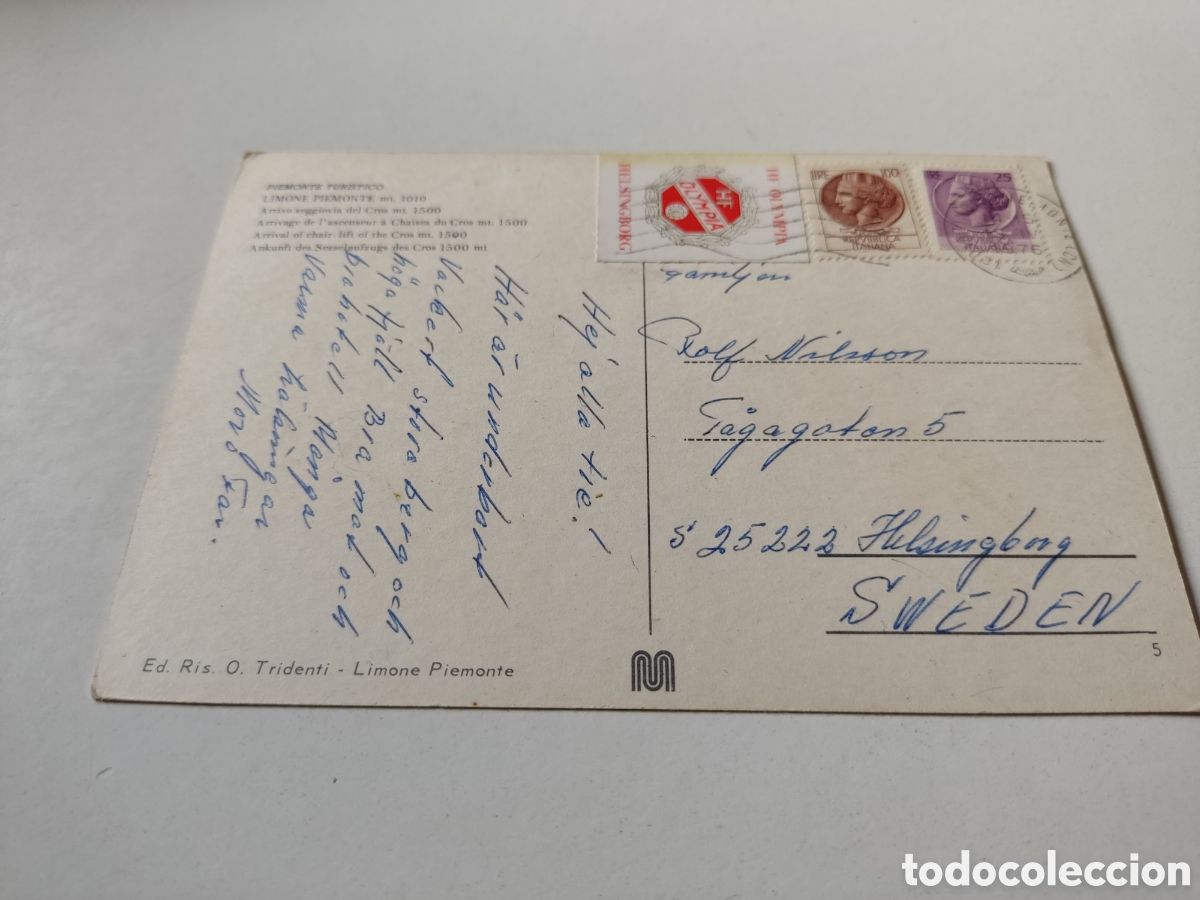 PIEMONTE TURISTICO
LIMONE PIEMONTE mt. 1010
Arrivo seggiovia del Cros mt. 1500
Arrivage de l'ascenseur à Chaises du Cros mt. 1500
Arrival of chair-lift of the Cros mt. 1500
Ankunft des Sesselaufzugs des Cros 1500 mt
Hej alla tre!
Här är underbart
Vackert stora berg och
höga fjäll Bra mat och
bra hotell Många
Varma hälsningar
Mor Far.
HELSINGBORG
HF
OLYMPIA
HF OLYMPIA
LIRE 100
REPVBBLICA
ITALIANA
25
REPVBBLICA
ITALIANA
familjen
Rolf Nilsson
Tågagatan 5
S 25222 Helsingborg
SWEDEN
Ed. Ris. O. Tridenti - Limone Piemonte
5
todocoleccion